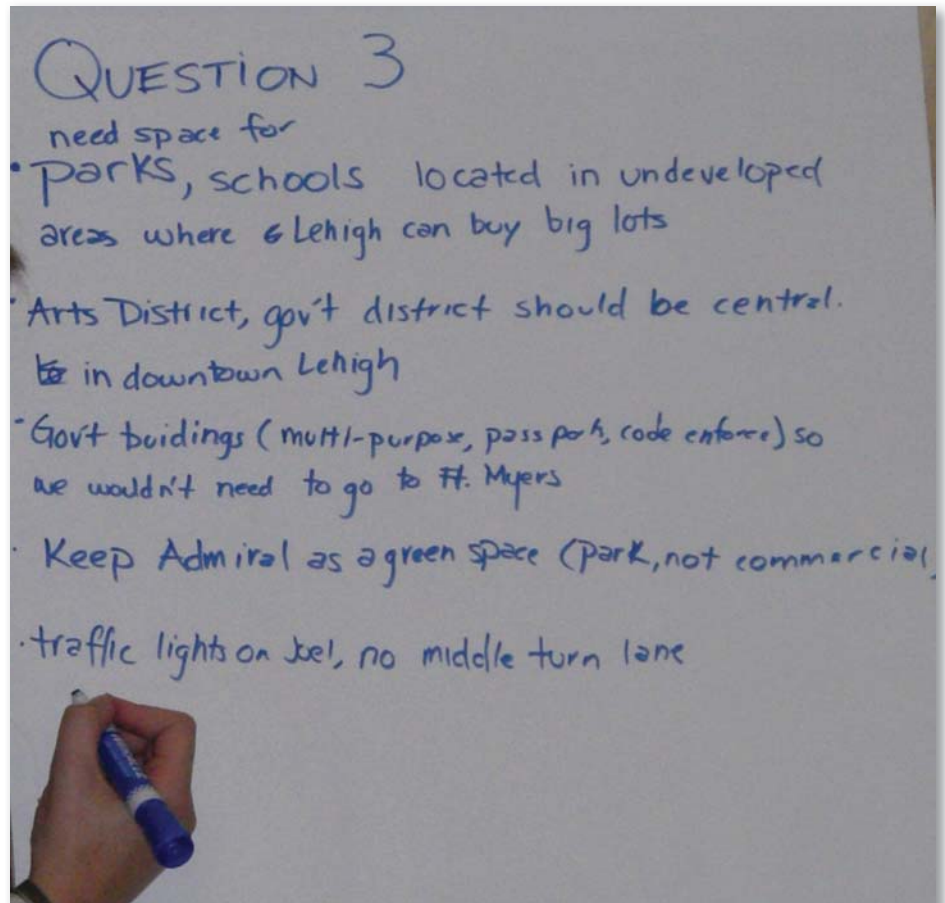 QUESTION 3
need space for
• parks, schools located in undeveloped
areas where Lehigh can buy big lots
• Arts District, gov't district should be central.
in downtown Lehigh
- Gov't buidings (multi-purpose, passport, code enforce) so
we wouldn't need to go to Ft. Myers
• Keep Admiral as a green space (park, not commercial
• traffic lights on Joel, no middle turn lane